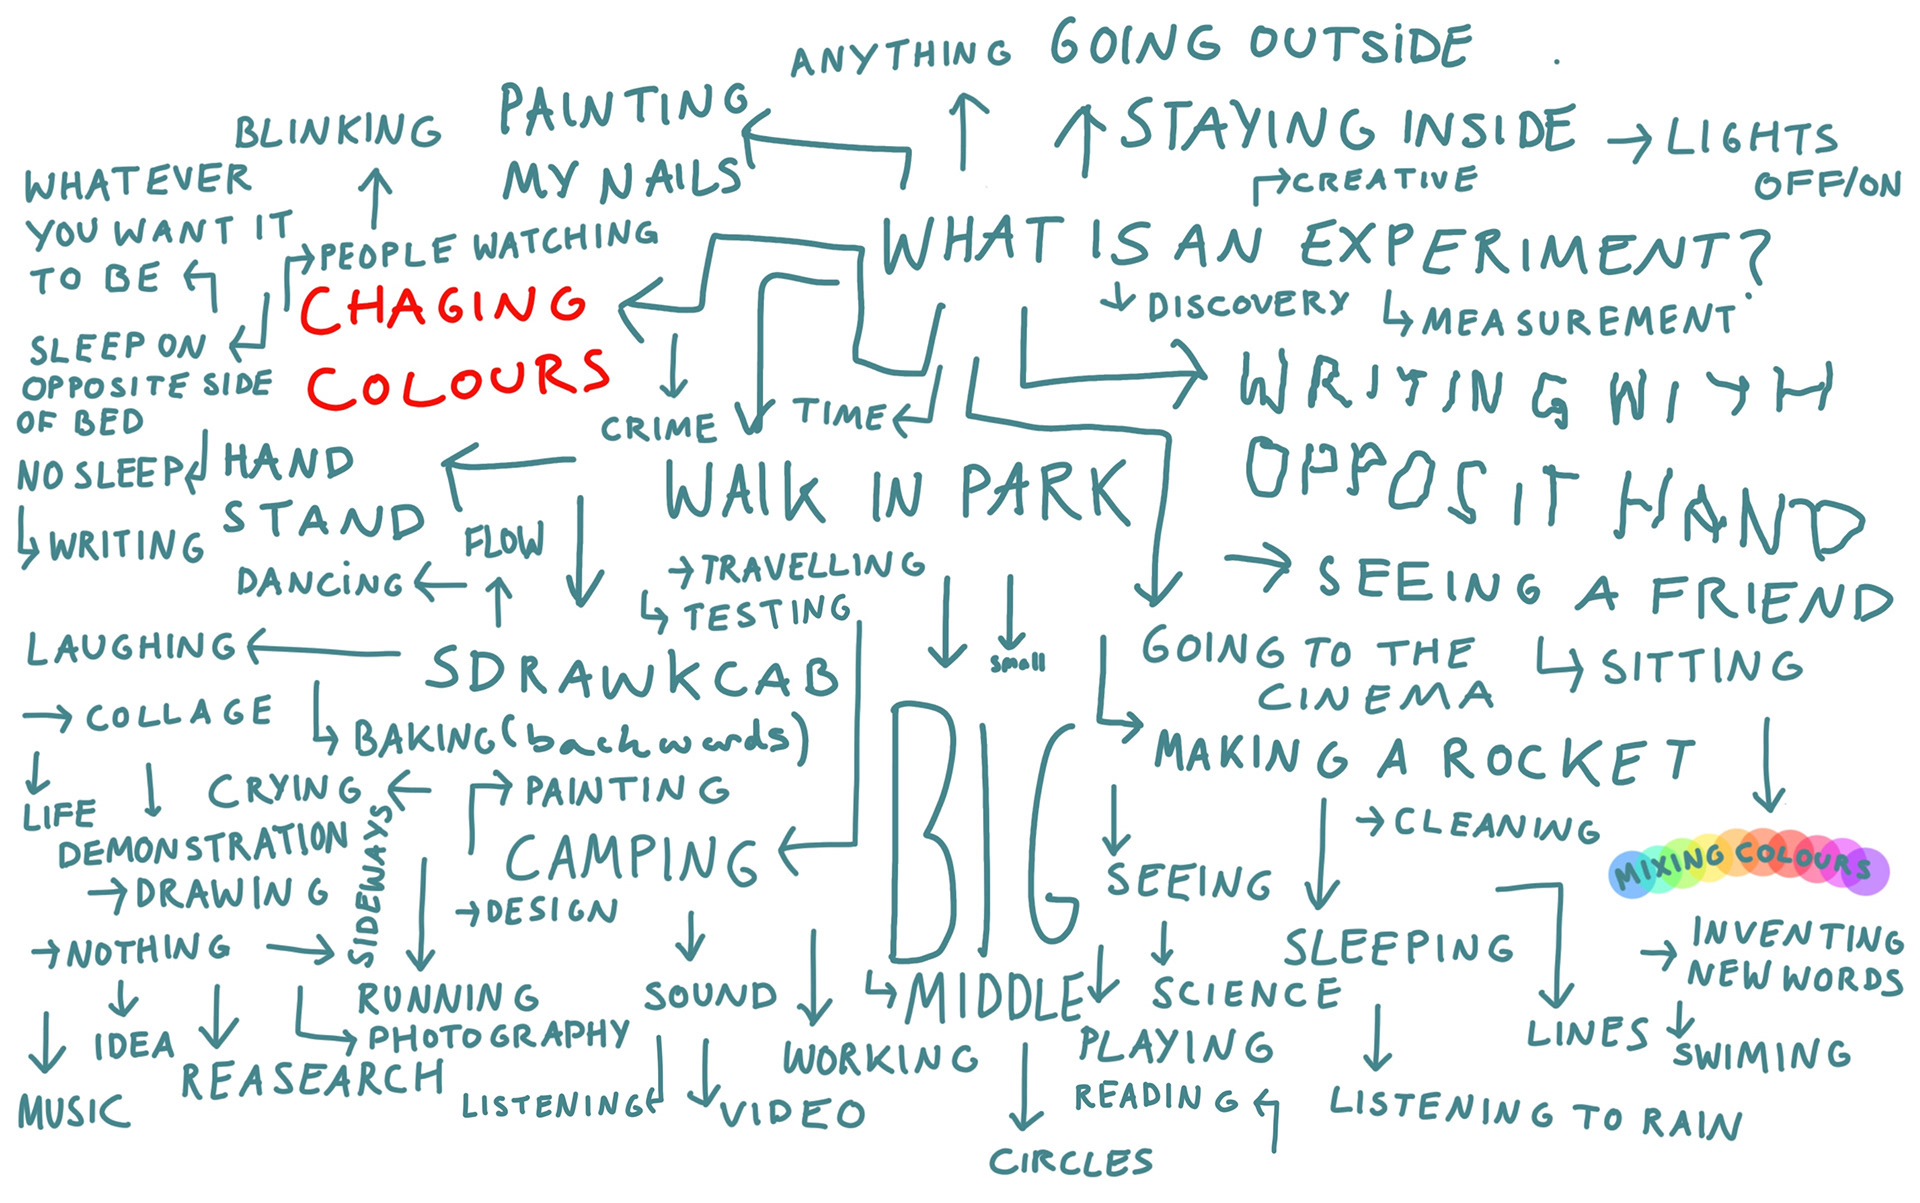 ANYTHING
GOING OUTSIDE
PAINTING
MY NAILS
BLINKING
STAYING INSIDE
LIGHTS
OFF/ON
CREATIVE
WHATEVER
YOU WANT IT
TO BE
PEOPLE WATCHING
WHAT IS AN EXPERIMENT?
DISCOVERY
MEASUREMENT
CHAGING
COLOURS
SLEEP ON
OPPOSITE SIDE
OF BED
CRIME
TIME
WRITING WITH
OPPOSIT HAND
NO SLEEP
HAND
STAND
WRITING
FLOW
DANCING
WALK IN PARK
TRAVELLING
TESTING
small
SEEING A FRIEND
SITTING
GOING TO THE
CINEMA
LAUGHING
SDRAWKCAB
COLLAGE
BAKING (backwards)
MAKING A ROCKET
LIFE
CRYING
PAINTING
DEMONSTRATION
SIDEWAYS
CAMPING
BIG
SEEING
CLEANING
MIXING COLOURS
DRAWING
DESIGN
NOTHING
SLEEPING
INVENTING
NEW WORDS
IDEA
RUNNING
SOUND
MIDDLE
SCIENCE
LINES
SWIMING
MUSIC
REASEARCH
PHOTOGRAPHY
LISTENING
VIDEO
WORKING
PLAYING
READING
LISTENING TO RAIN
CIRCLES